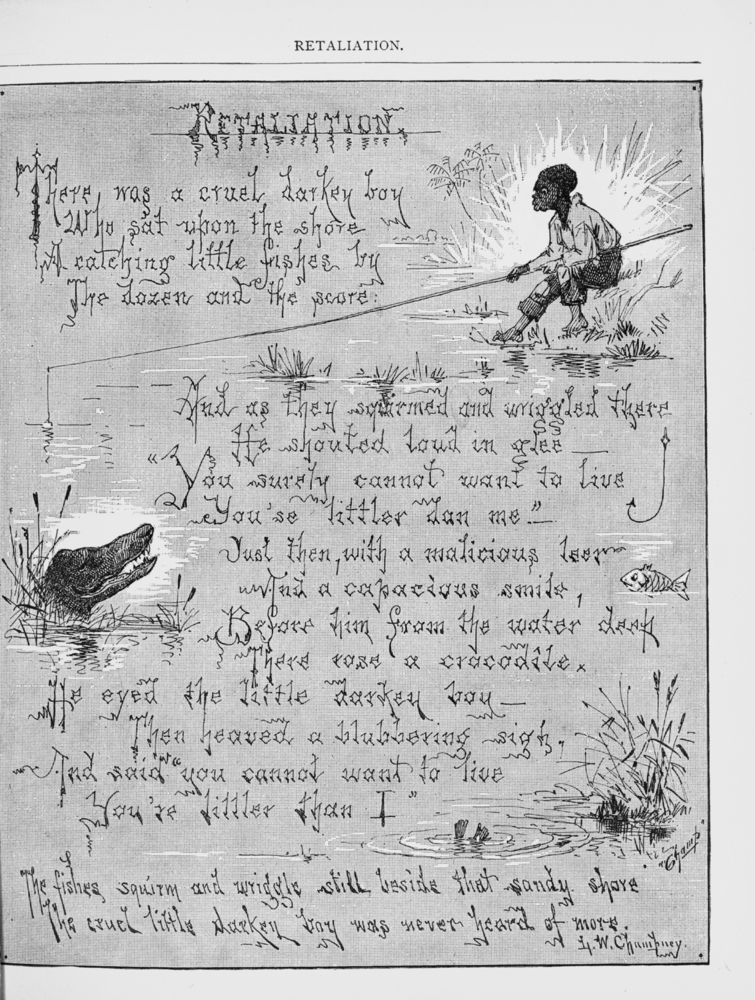 RETALIATION.
RETALIATION.
There was a cruel darkey boy
Who sat upon the shore
A catching little fishes by
The dozen and the score:
And as they squirmed and wriggled there
He shouted loud in glee —
"You surely cannot want to live
You'se littler dan me."—
Just then, with a malicious leer
And a capacious smile,
Before him from the water deep
There rose a crocodile.
He eyed the little darkey boy —
Then heaved a blubbering sigh,
And said "you cannot want to live
You're littler than I"
"Champ"
The fishes squirm and wriggle still beside that sandy shore
The cruel little darkey boy was never heard of more.
L. W. Champney.